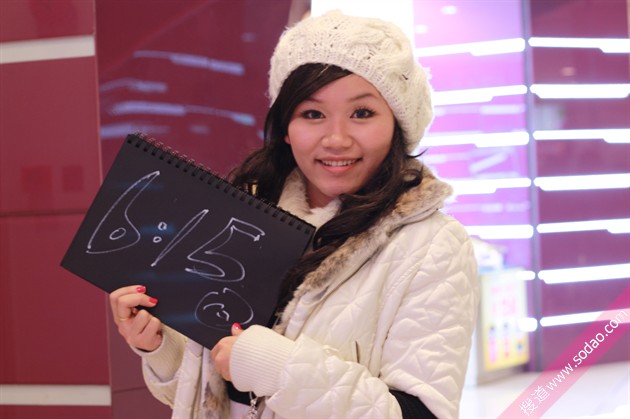 6:15
搜道 www.sodao.com